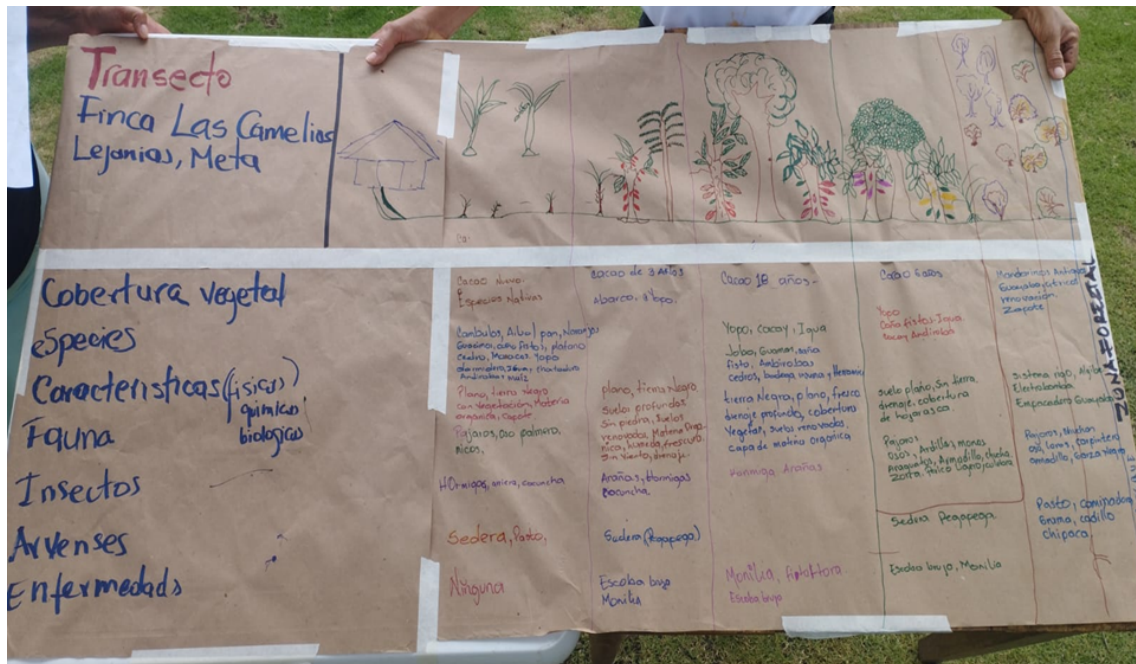 Transecto
Finca Las Camelias
Lejanias, Meta
Cobertura vegetal
especies
Caracteristicas (fisicas)
quimicas
biologicas
Fauna
Insectos
Arvenses
Enfermedads
Cacao Nuevo.
Especies Nativas
Cambulos, Arbol pan, Naranjos
platano
cedro, Yopo
Plano, tierra negro
con vegetación, Materia
organica,
Pajaros, Oso palmero,
micos,
Hormigas,
Sedera, Pasto,
Ninguna
cacao de 3 Años
Abarco, Yopo,
plano, tierra Negro
suelos profundos
sin piedra, suelos
renovados, Materia Orga-
nica, humeda, fresco
sin viento, drenaje
Arañas, Hormigas
cocuncha
Sudera (Pegapega)
Escoba bruja
Monilia
Cacao 18 años-
Yopo, Cacay, Iqua
Jobo, Guamos,
fisto,
cedros,
tierra Negra, plano, fresco
drenaje profundo, cobertura
Vegetal, suelos renovados
capa de matria organica
Arañas
Monilia, Fitoftora
Escoba brujo
Cacao 6 años
Yopo
Caña fistos-Iqua
Cacay Andirobos
suelo plano, Sin tierra
drenaje, cobertura
de hojarasca
Pajaros
osos, Ardillas, monos
Armadillo, chucha
Zorra,
Sedera Pegapega
Escoba brujo, Monilia
Mandarinos
Guayabo, citricos
renovación
Zapote
Sistema riego,
Electrobomba
Empacadero Guayaba
Pajaros,
oso, loros, carpintero
armadillo, Garza Negra
Pasto,
Grama, cadillo
chipaca
ZONA FORESTAL